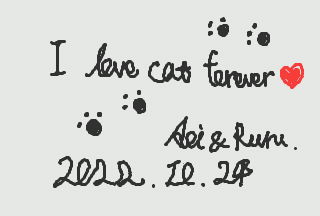 I love cat forever
Aei & Ruru.
2022.10.29